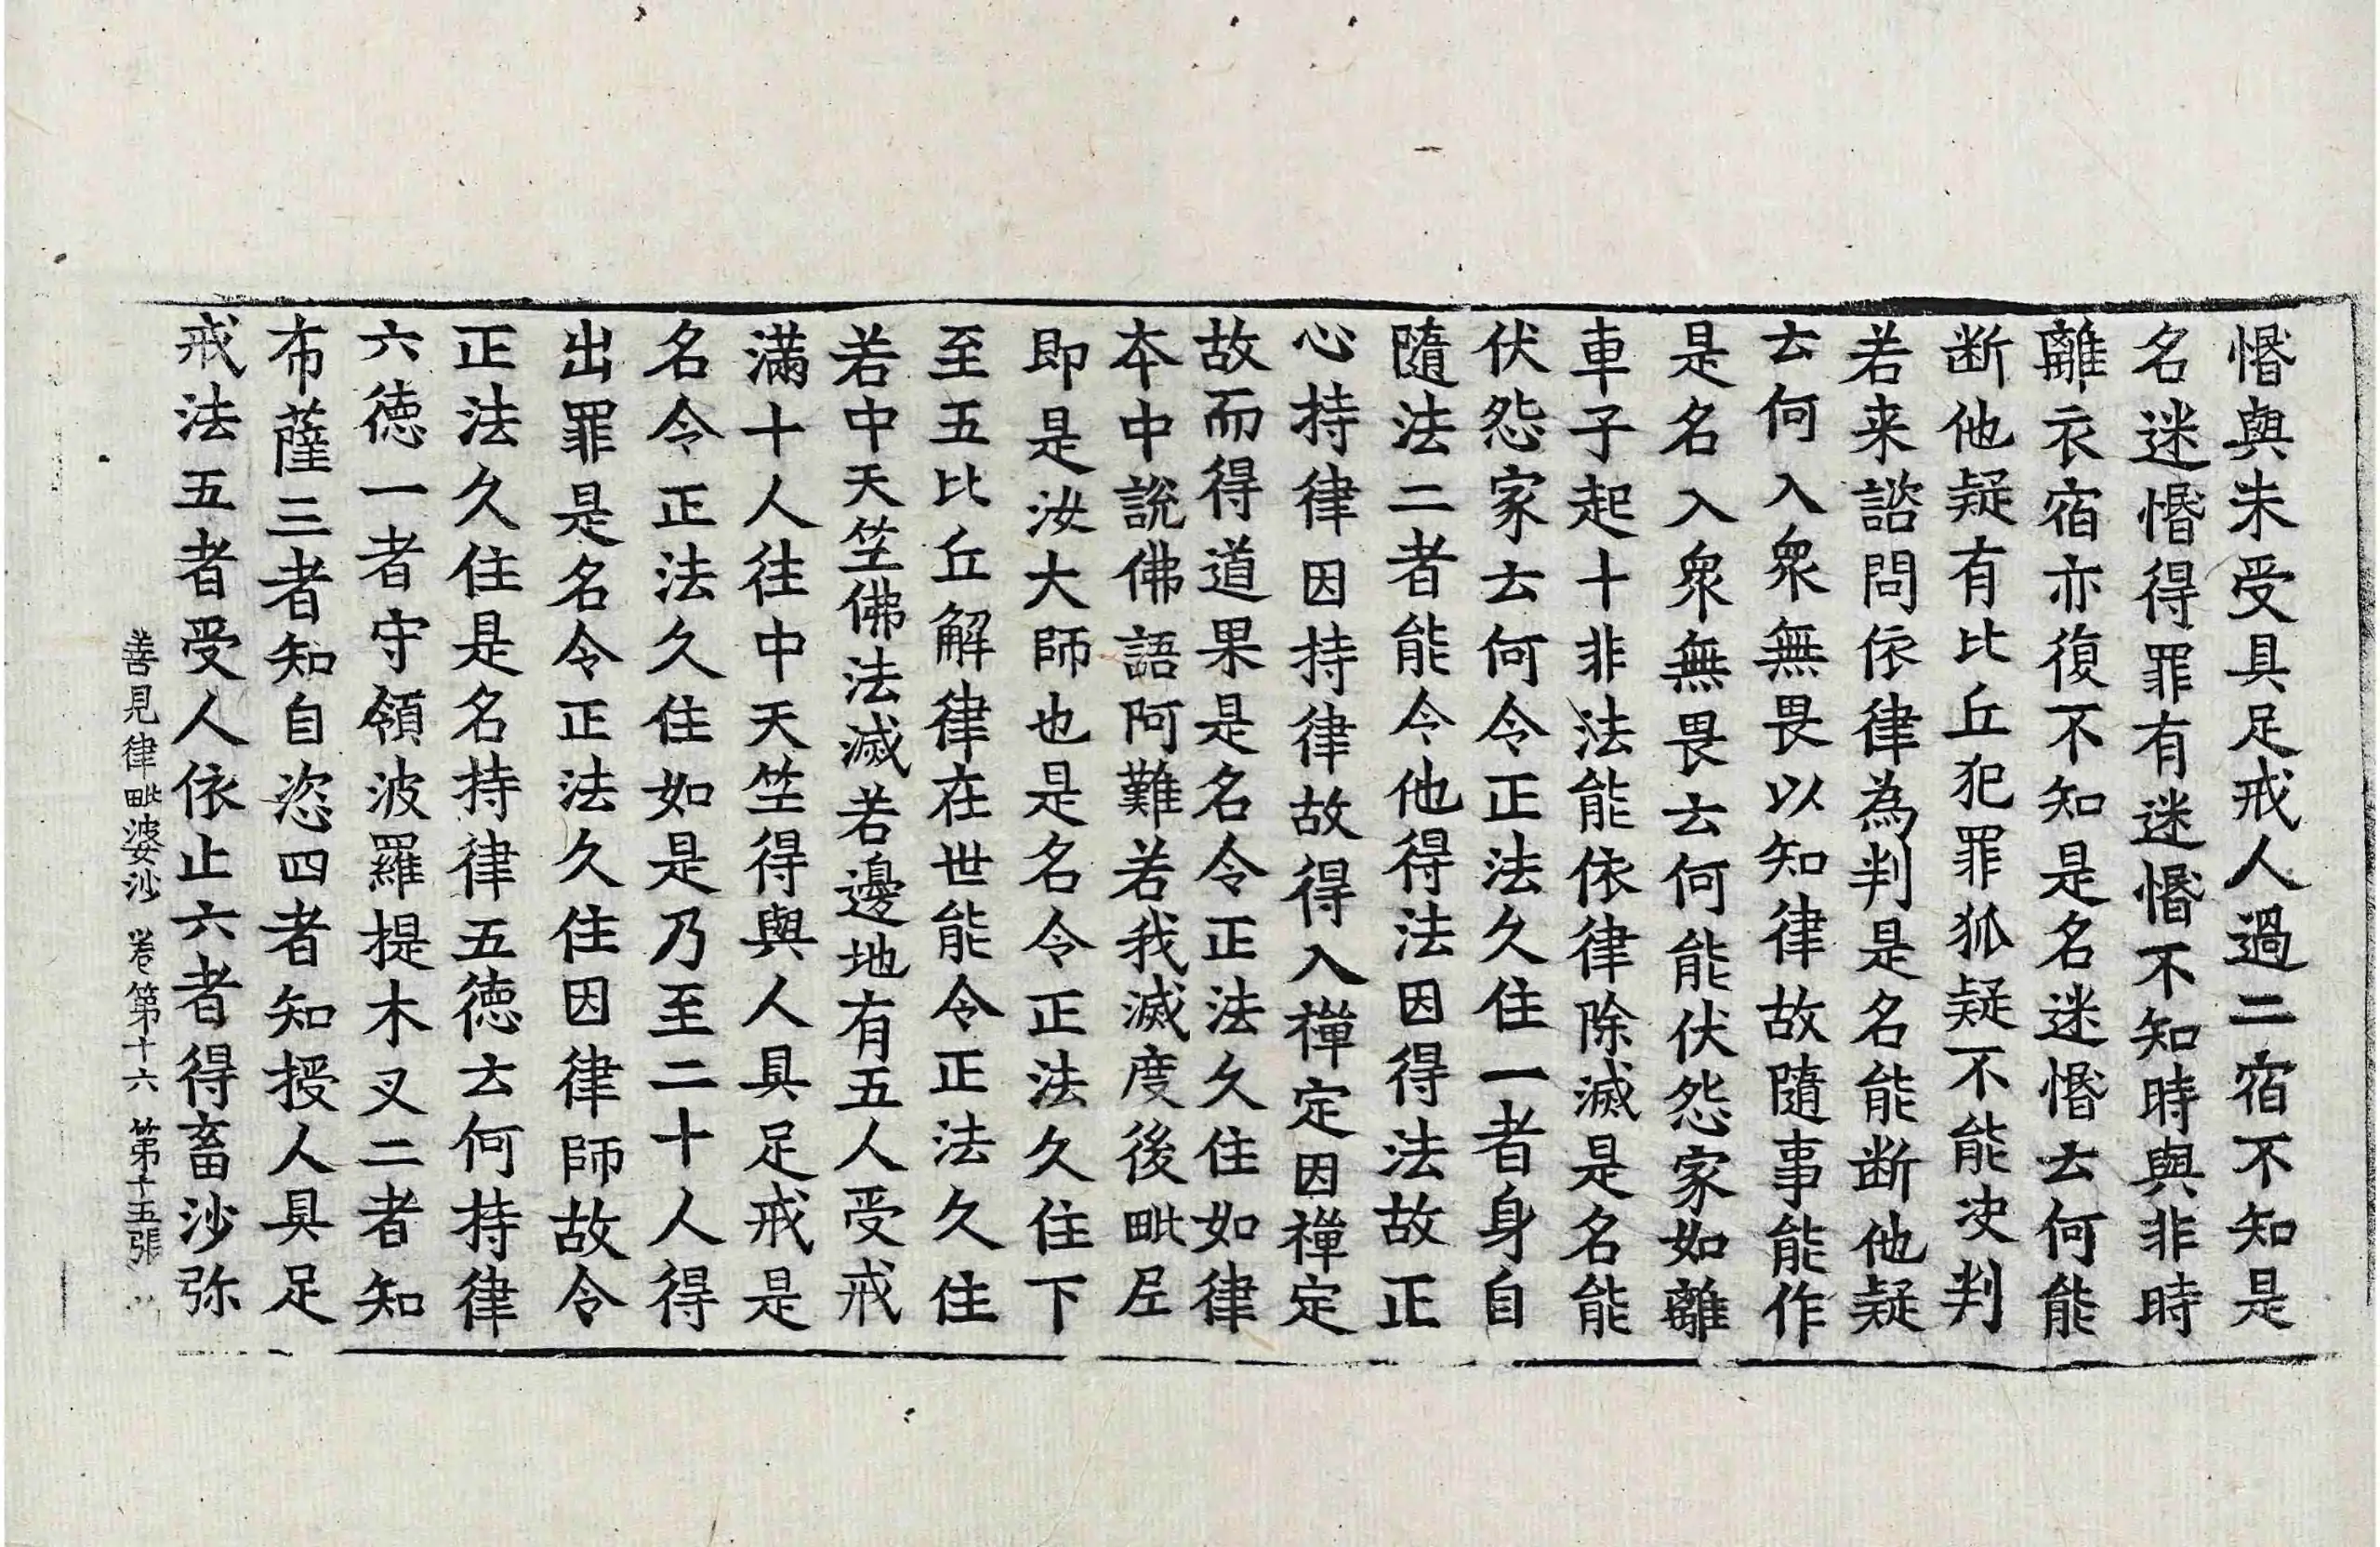 惛與未受具足戒人過二宿不知是
名迷惛得罪有迷惛不知時與非時
離衣宿亦復不知是名迷惛云何能
断他疑有比丘犯罪狐疑不能决判
若来諮問依律為判是名能断他疑
云何入衆無畏以知律故隨事能作
是名入衆無畏云何能伏怨家如離
車子起十非法能依律除滅是名能
伏怨家云何令正法久住一者身自
隨法二者能令他得法因得法故正
心持律因持律故得入禅定因禅定
故而得道果是名令正法久住如律
本中說佛語阿難若我滅度後毗尼
即是汝大師也是名令正法久住下
至五比丘解律在世能令正法久住
若中天竺佛法滅若邊地有五人受戒
滿十人往中天竺得與人具足戒是
名令正法久住如是乃至二十人得
出罪是名令正法久住因律師故令
正法久住是名持律五德云何持律
六德一者守領波羅提木叉二者知
布薩三者知自恣四者知授人具足
戒法五者受人依止六者得畜沙弥
善見律毗婆沙 卷第十六 第十五張